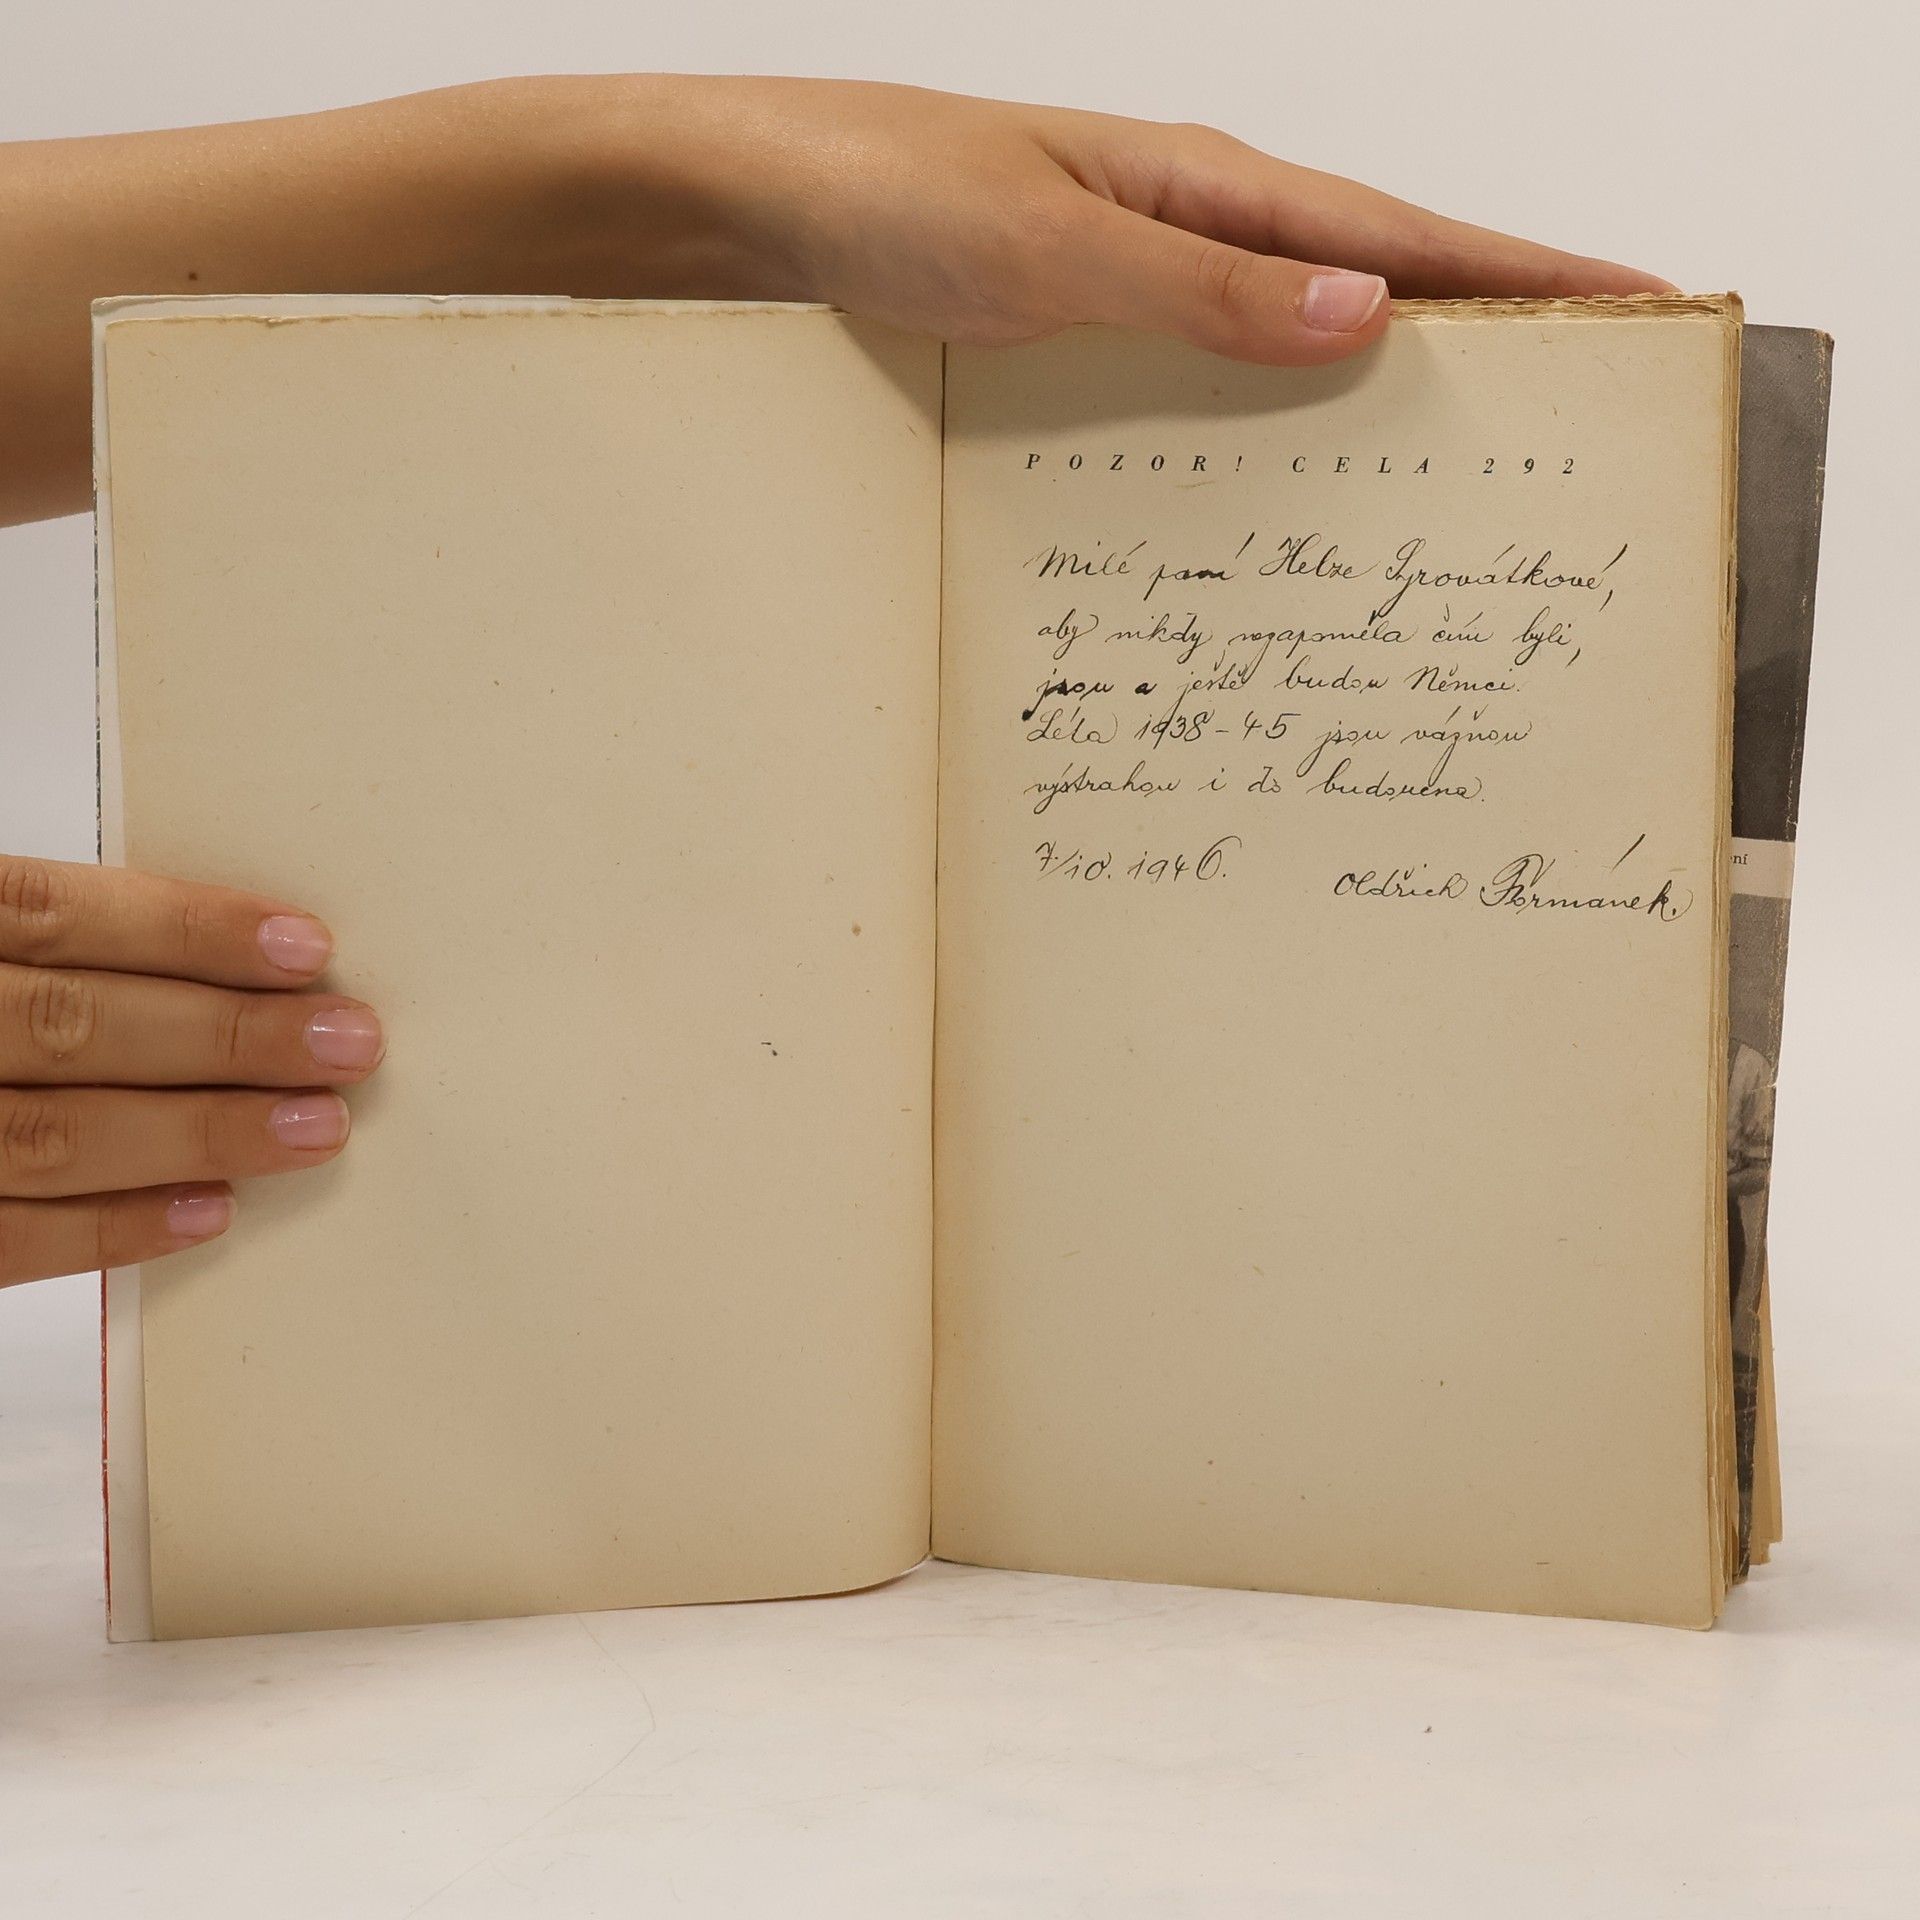 POZOR! CELA 292
Milé paní Helze Syrovátkové,
aby nikdy nezapoměla čím byli,
jsou a ještě budou Němci.
Léta 1938-45 jsou vážnou
výstrahou i do budoucna.
7/10. 1946.
Oldřich Formánek.
ení